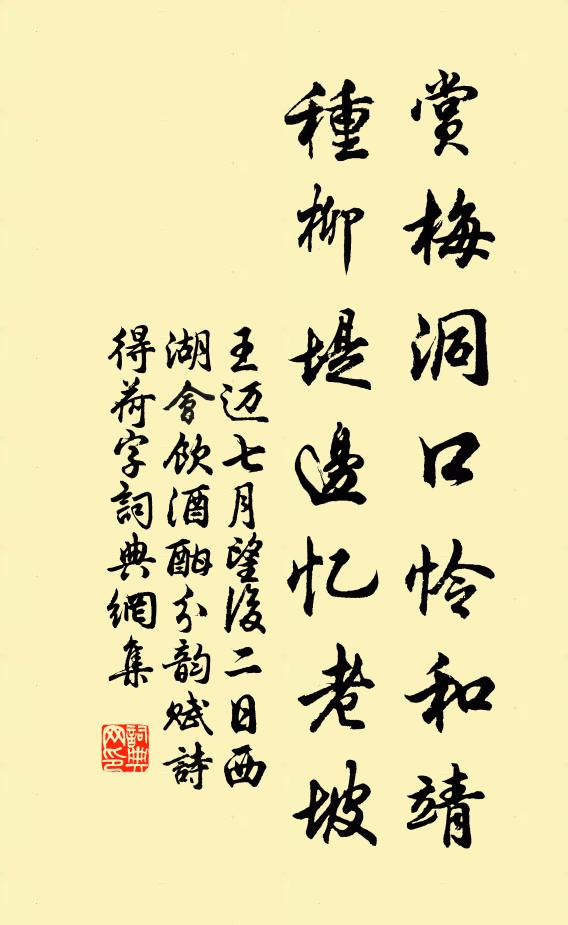 賞梅洞口怜和靖
種柳堤邊忆老坡
王迈七月望後二日西
湖會飲酒酣分韵赋詩
得荷字詞典網集
詞典
网印